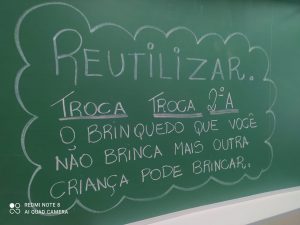 REUTILIZAR..
TROCA TROCA 2ºA
O BRINQUEDO QUE VOCÊ
NÃO BRINCA MAIS OUTRA
CRIANÇA PODE BRINCAR..
REDMI NOTE 8
AI QUAD CAMERA